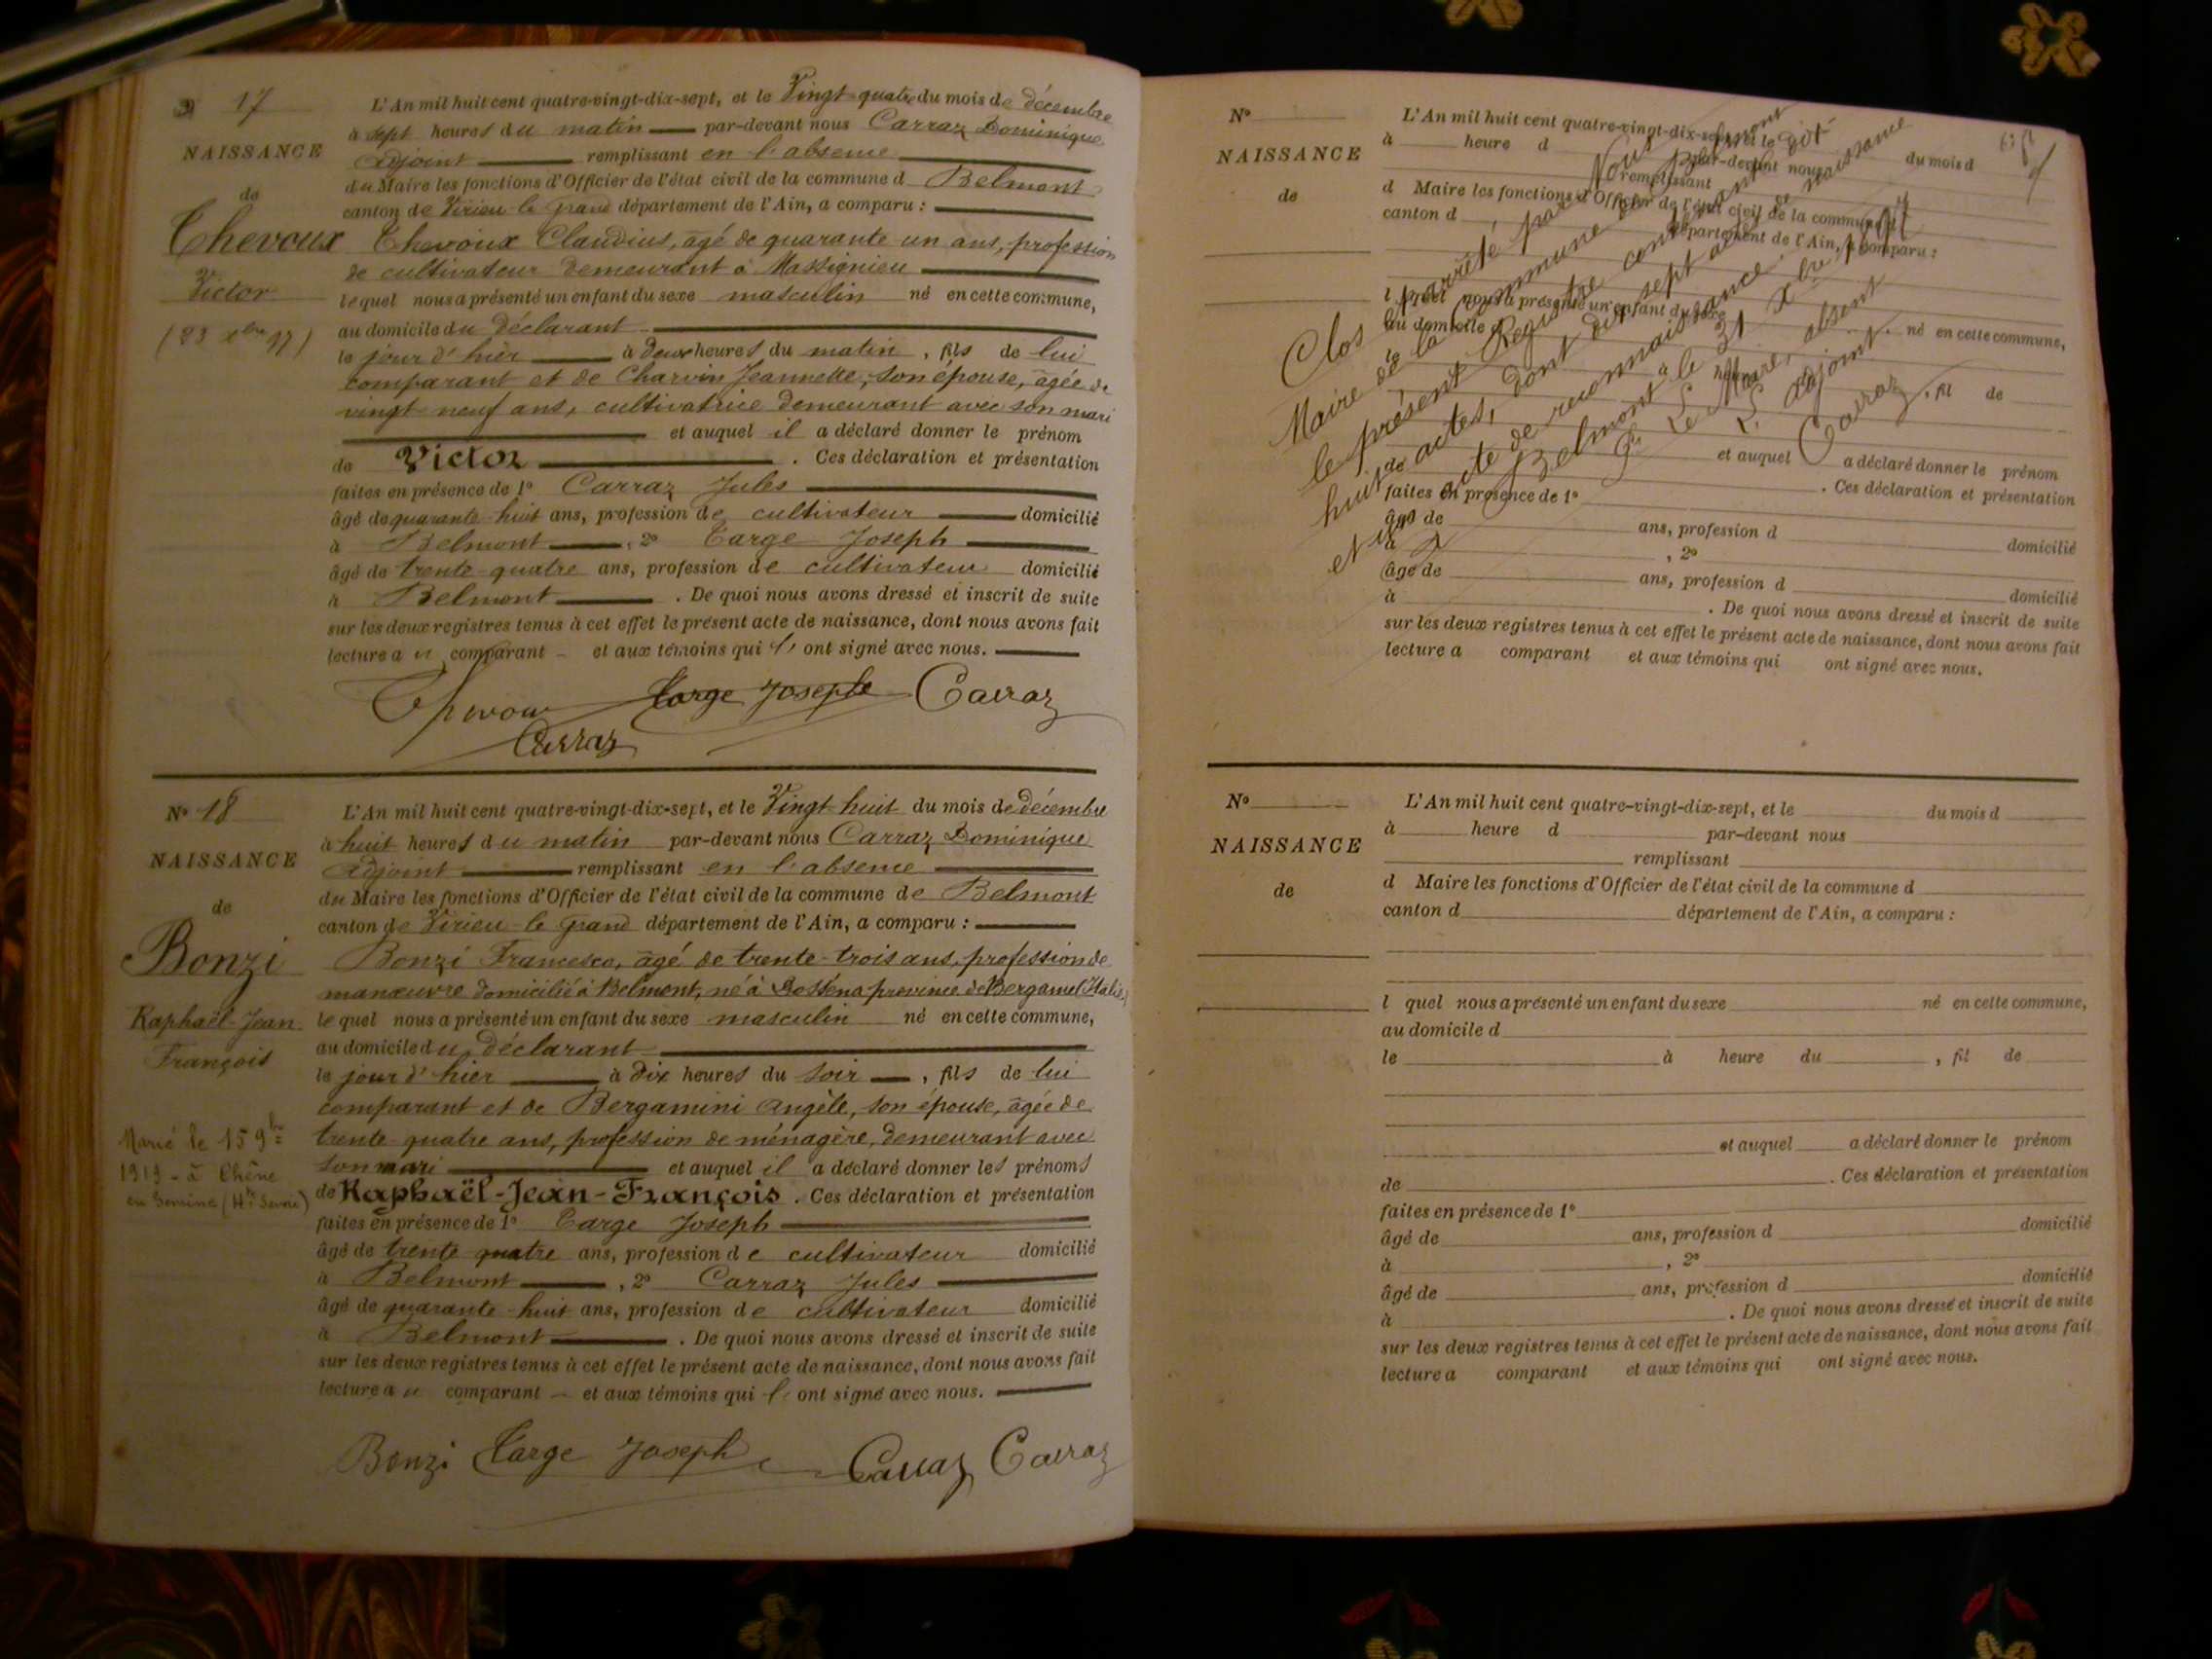 N° 17
NAISSANCE
de
Chevoux
Victor
(23 xbre 97)
L'An mil huit cent quatre-vingt-dix-sept, et le Vingt-quatre du mois de décembre
à sept heures du matin par-devant nous Carraz Dominique
Adjoint remplissant en l'absence
du Maire les fonctions d'Officier de l'état civil de la commune d Belmont
canton de Virieu-le-grand département de l'Ain, a comparu :
Chevoux Claudius, âgé de quarante un ans, profession
de cultivateur demeurant à Massignieu
lequel nous a présenté un enfant du sexe masculin né en cette commune,
au domicile du déclarant
le jour d'hier à deux heures du matin, fils de lui
comparant et de Charvin Jeannette, son épouse, âgée de
vingt-neuf ans, cultivatrice demeurant avec son mari
et auquel il a déclaré donner le prénom
de Victor. Ces déclaration et présentation
faites en présence de 1° Carraz Jules
âgé de quarante-huit ans, profession de cultivateur domicilié
à Belmont, 2° Targe Joseph
âgé de trente-quatre ans, profession de cultivateur domicilié
à Belmont. De quoi nous avons dressé et inscrit de suite
sur les deux registres tenus à cet effet le présent acte de naissance, dont nous avons fait
lecture au comparant et aux témoins qui l' ont signé avec nous.
Targe Joseph Carraz
Carraz
N° 18
NAISSANCE
de
Bonzi
Raphaël-Jean
François
Marié le 15 9bre
1919 - à Chêne
en Semine (Hte Savoie)
L'An mil huit cent quatre-vingt-dix-sept, et le Vingt-huit du mois de décembre
à huit heures du matin par-devant nous Carraz Dominique
Adjoint remplissant en l'absence
du Maire les fonctions d'Officier de l'état civil de la commune de Belmont
canton de Virieu-le-grand département de l'Ain, a comparu :
Bonzi Francesco, âgé de trente-trois ans, profession de
manœuvre domicilié à Belmont, né à province de Bergame (Italie)
lequel nous a présenté un enfant du sexe masculin né en cette commune,
au domicile du déclarant
le jour d'hier à dix heures du soir, fils de lui
comparant et de Bergamini Angèle, son épouse, âgée de
trente-quatre ans, profession de ménagère, demeurant avec
son mari et auquel il a déclaré donner les prénoms
de Raphaël-Jean-François. Ces déclaration et présentation
faites en présence de 1° Targe Joseph
âgé de trente quatre ans, profession de cultivateur domicilié
à Belmont, 2° Carraz Jules
âgé de quarante-huit ans, profession de cultivateur domicilié
à Belmont. De quoi nous avons dressé et inscrit de suite
sur les deux registres tenus à cet effet le présent acte de naissance, dont nous avons fait
lecture au comparant et aux témoins qui l' ont signé avec nous.
Bonzi Targe Joseph Carraz Carraz
N°
NAISSANCE
de
L'An mil huit cent quatre-vingt-dix-sept, et le du mois d
à heure d par-devant nous
remplissant
d Maire les fonctions d'Officier de l'état civil de la commune d
canton d département de l'Ain, a comparu :
l quel nous a présenté un enfant du sexe né en cette commune,
au domicile d
le à heure , fil de
et auquel a déclaré donner le prénom
de . Ces déclaration et présentation
faites en présence de 1°
âgé de ans, profession d domicilié
à , 2°
âgé de ans, profession d domicilié
à . De quoi nous avons dressé et inscrit de suite
sur les deux registres tenus à cet effet le présent acte de naissance, dont nous avons fait
lecture a comparant et aux témoins qui ont signé avec nous.
Clos et arrêté par Nous
Maire de la commune de Belmont
le présent Registre contenant dix
huit actes, dont dix sept actes de naissance
et un acte de reconnaissance.
Belmont le 31 xbre 1897
Pr Le Maire, absent
L'adjoint
Carraz
N°
NAISSANCE
de
L'An mil huit cent quatre-vingt-dix-sept, et le du mois d
à heure d par-devant nous
remplissant
d Maire les fonctions d'Officier de l'état civil de la commune d
canton d département de l'Ain, a comparu :
l quel nous a présenté un enfant du sexe né en cette commune,
au domicile d
le à heure du , fil de
et auquel a déclaré donner le prénom
de . Ces déclaration et présentation
faites en présence de 1°
âgé de ans, profession d domicilié
à , 2°
âgé de ans, profession d domicilié
à . De quoi nous avons dressé et inscrit de suite
sur les deux registres tenus à cet effet le présent acte de naissance, dont nous avons fait
lecture a comparant et aux témoins qui ont signé avec nous.